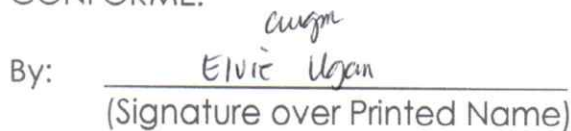 CONFORME:
By: Elvie Ugan
(Signature over Printed Name)